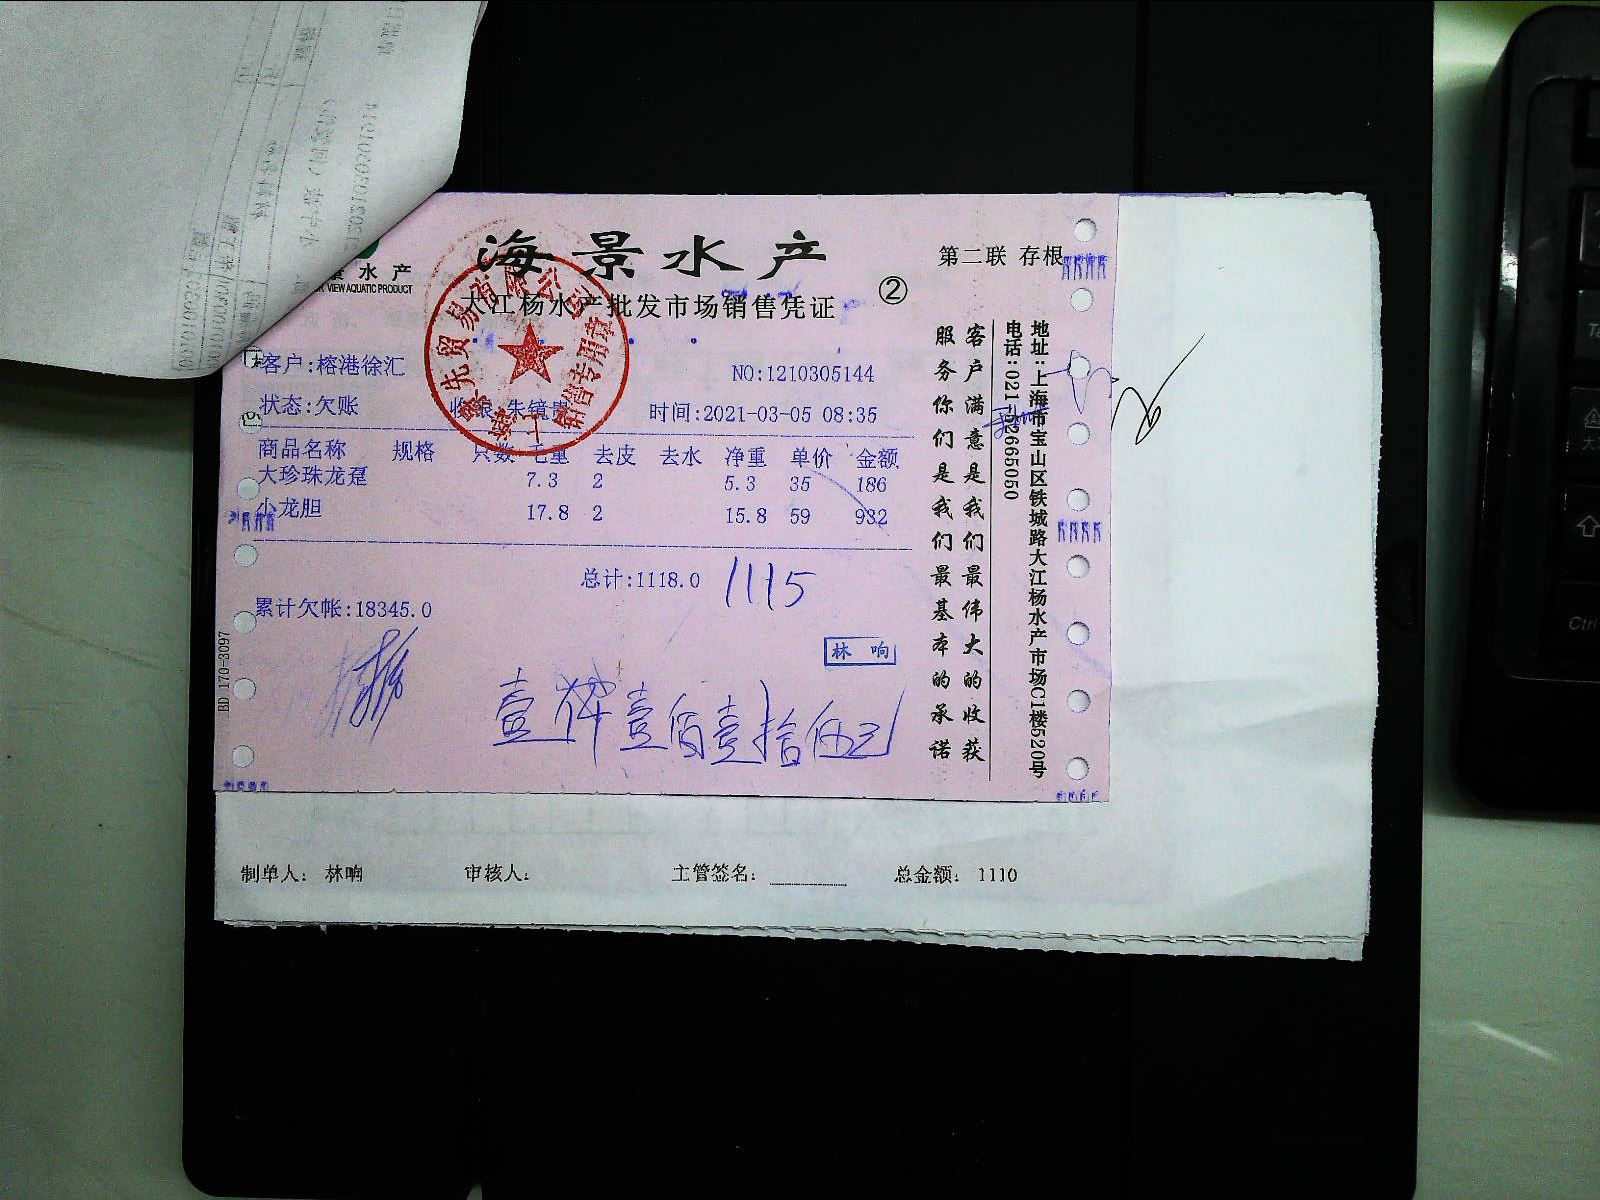 海景水产
水产
VIEW AQUATIC PRODUCT
大江杨水产批发市场销售凭证
②
第二联 存根
客户:榕港徐汇
NO:1210305144
状态:欠账
收银:朱镜贵
时间:2021-03-05 08:35
商品名称 规格 只数 毛重 去皮 去水 净重 单价 金额
大珍珠龙趸 7.3 2 5.3 35 186
小龙胆 17.8 2 15.8 59 932
总计:1118.0 1115
累计欠帐:18345.0
林响
壹仟壹佰壹拾伍元
BD 170-3097
客户满意是我们最伟大的收获
服务你们是我们最基本的承诺
地址:上海市宝山区铁城路大江杨水产市场C1楼520号
电话:021-52665050
制单人: 林响 审核人: 主管签名: 总金额: 1110